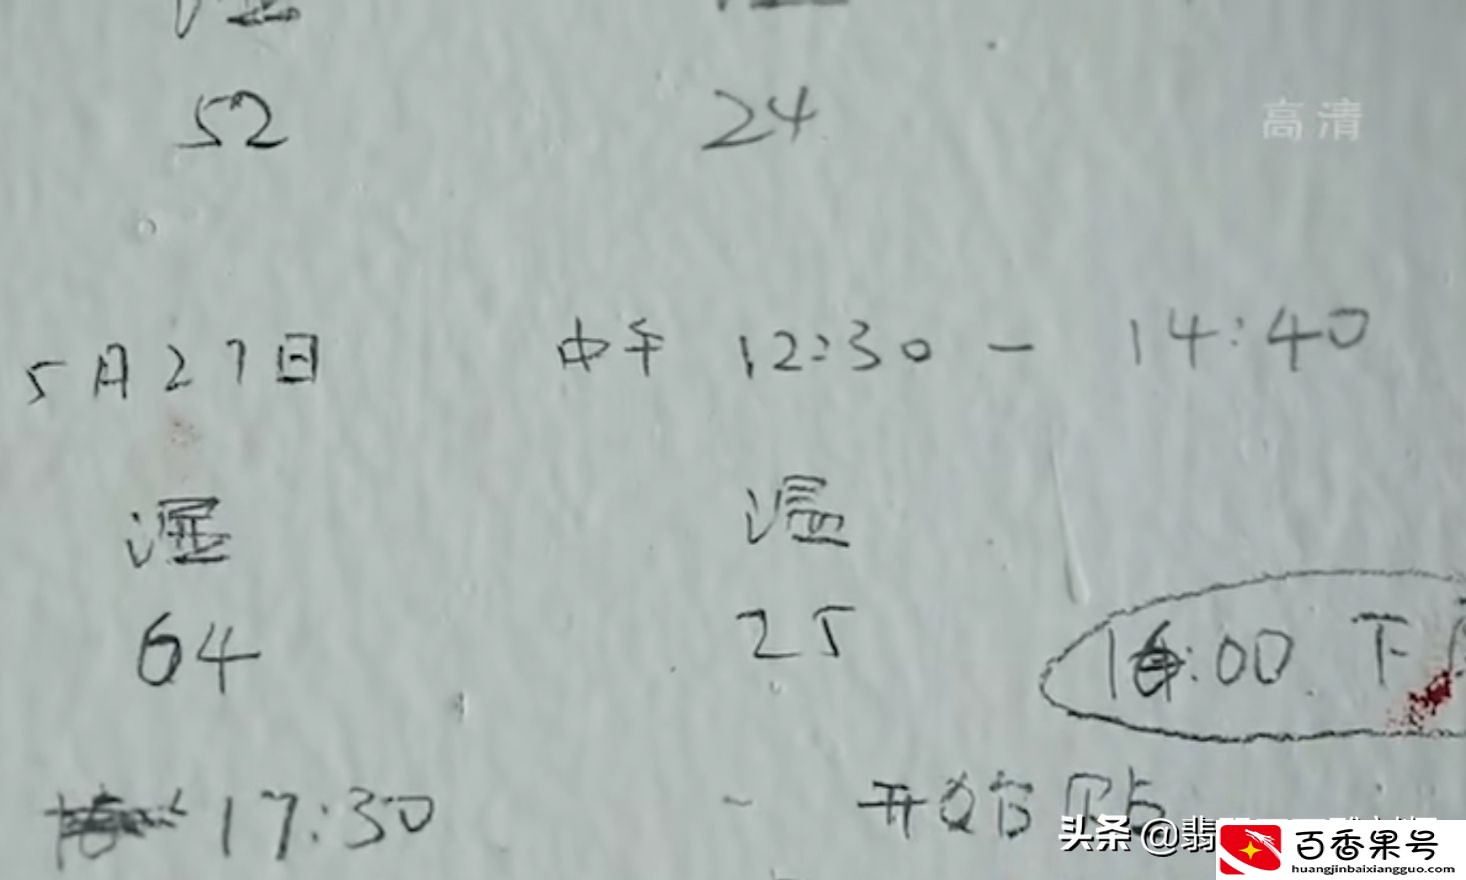 52 24
高清
5月27日 中午 12:30 — 14:40
湿 温
64 25
:00 下
17:30 - 开始贴
头条 @翡
百香果号
huangjinbaixiangguo.com